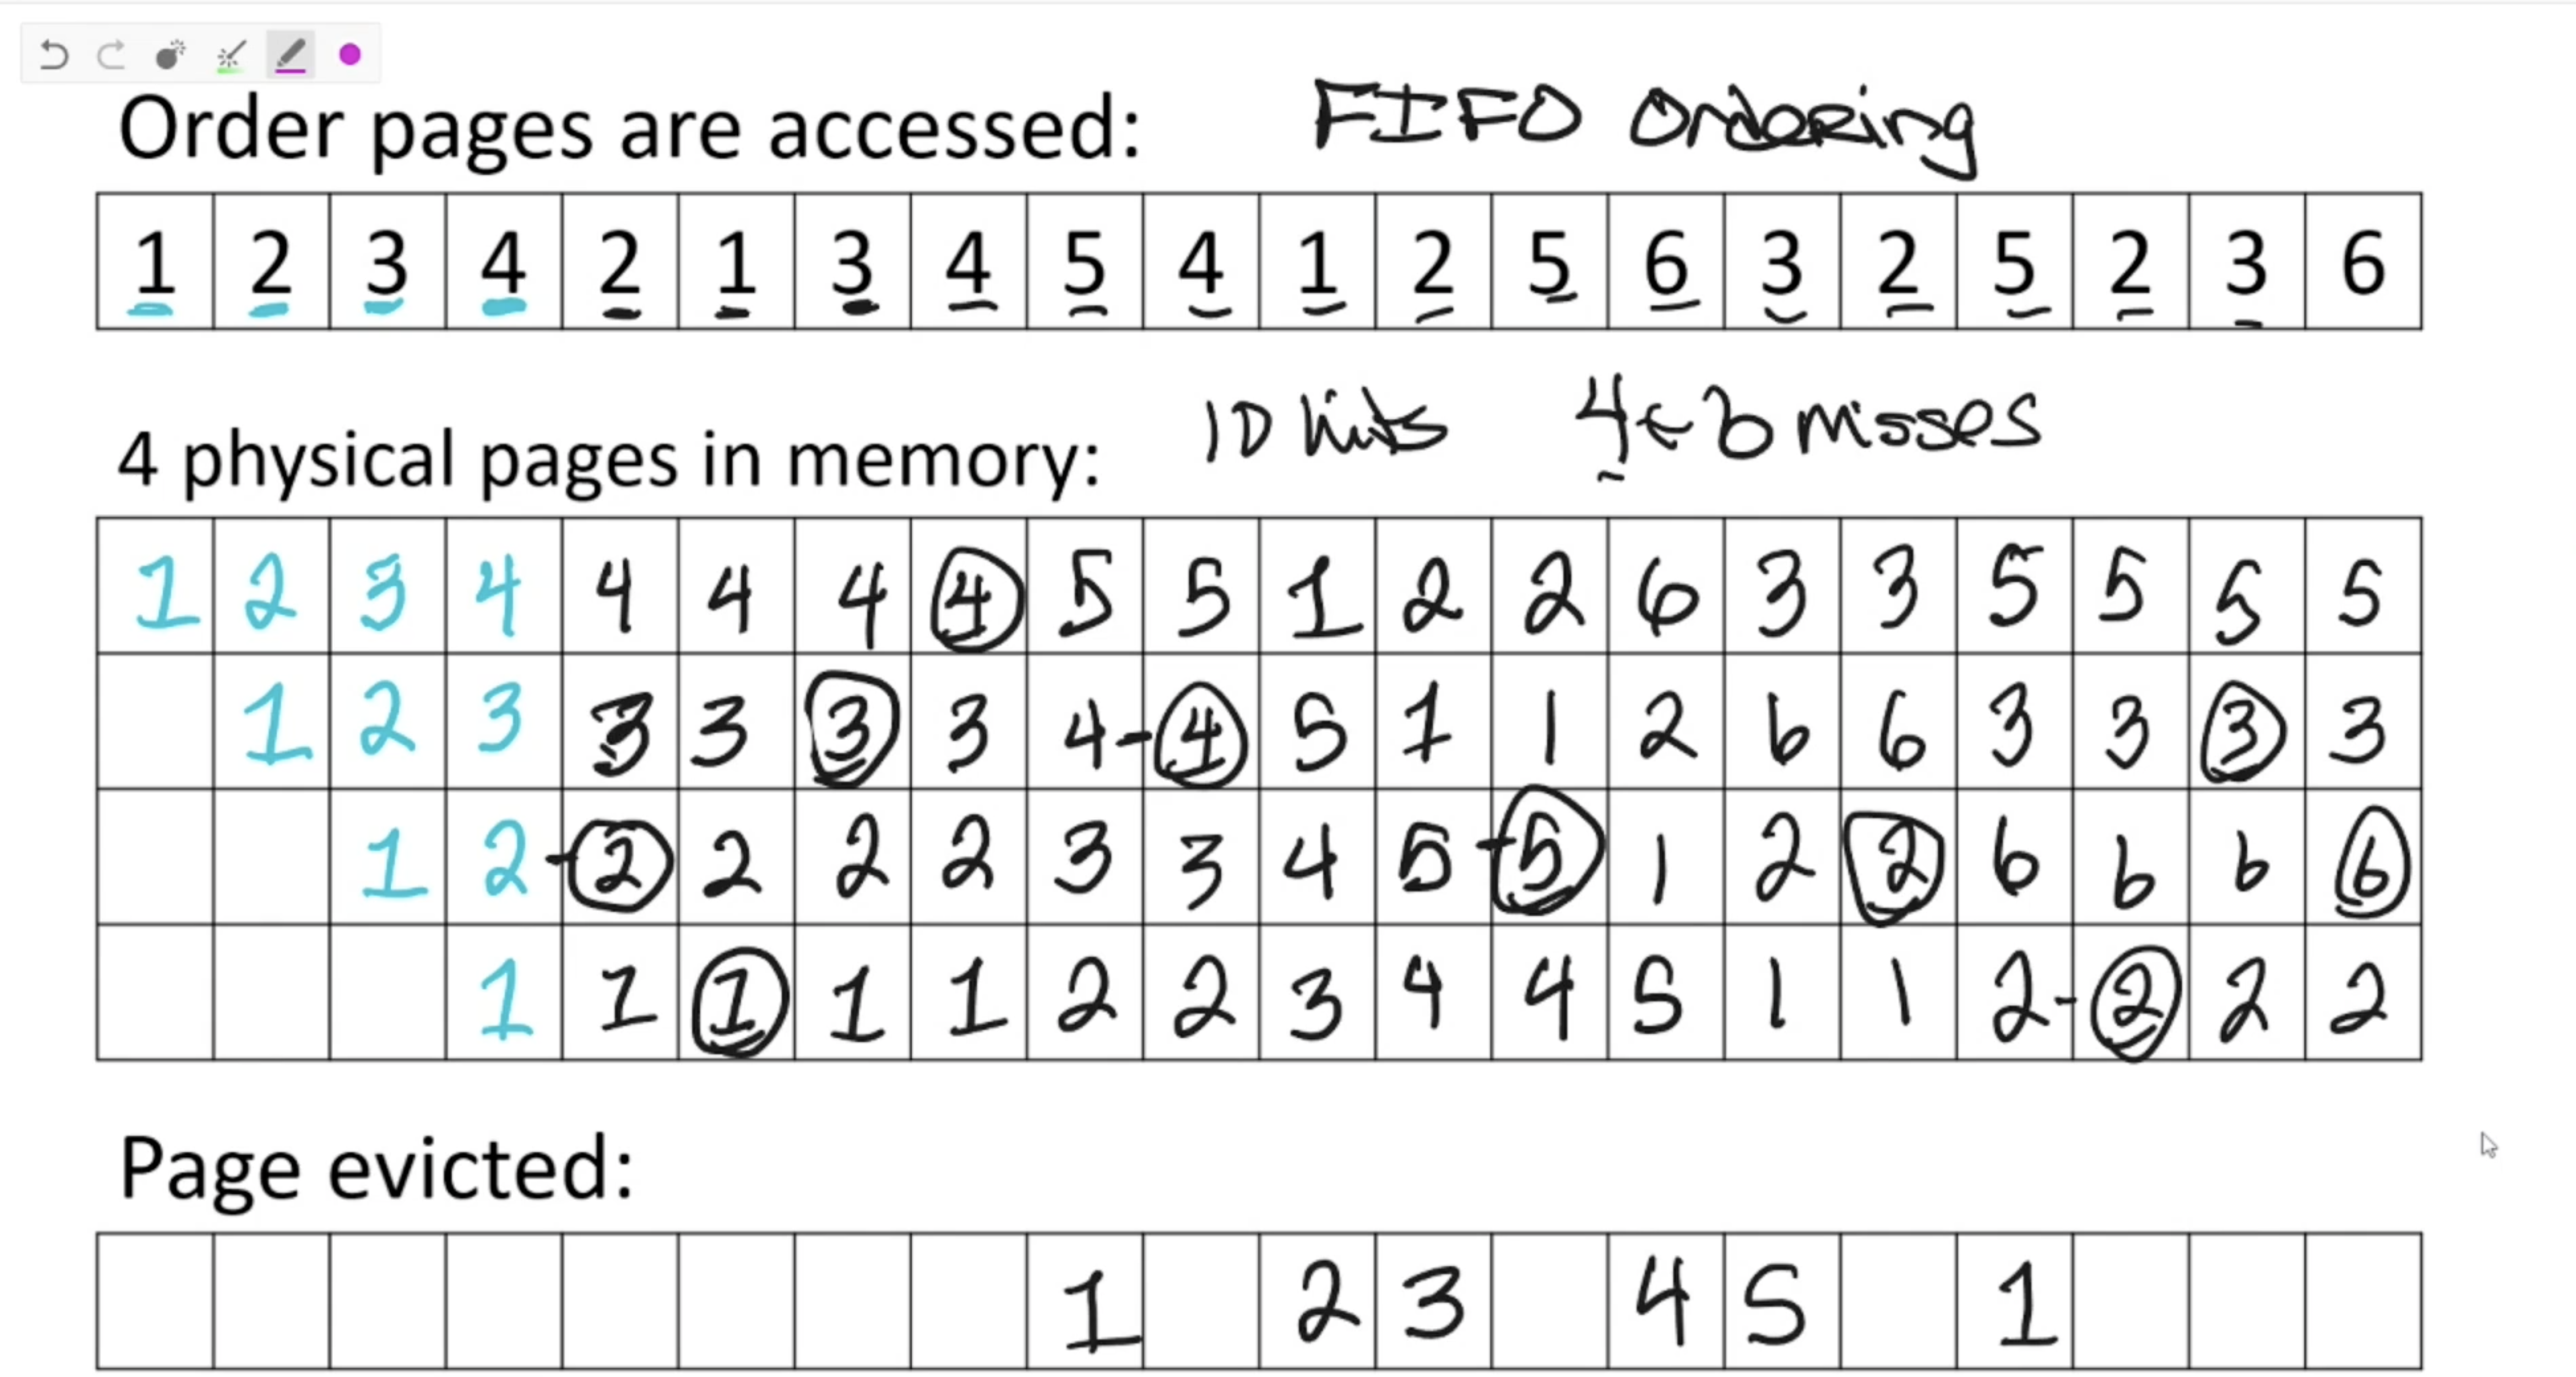 Order pages are accessed: FIFO Ordering
1 2 3 4 2 1 3 4 5 4 1 2 5 6 3 2 5 2 3 6
4 physical pages in memory: 10 hits 4 misses
1 2 3 4 4 4 4 4 5 5 1 2 2 6 3 3 5 5 5 5
1 2 3 3 3 3 3 4 4 5 1 1 2 6 6 3 3 3 3
1 2 2 2 2 2 3 3 4 5 5 1 2 2 6 6 6 6
1 1 1 1 1 2 2 3 4 4 5 1 1 2 2 2 2
Page evicted:
1 2 3 4 5 1